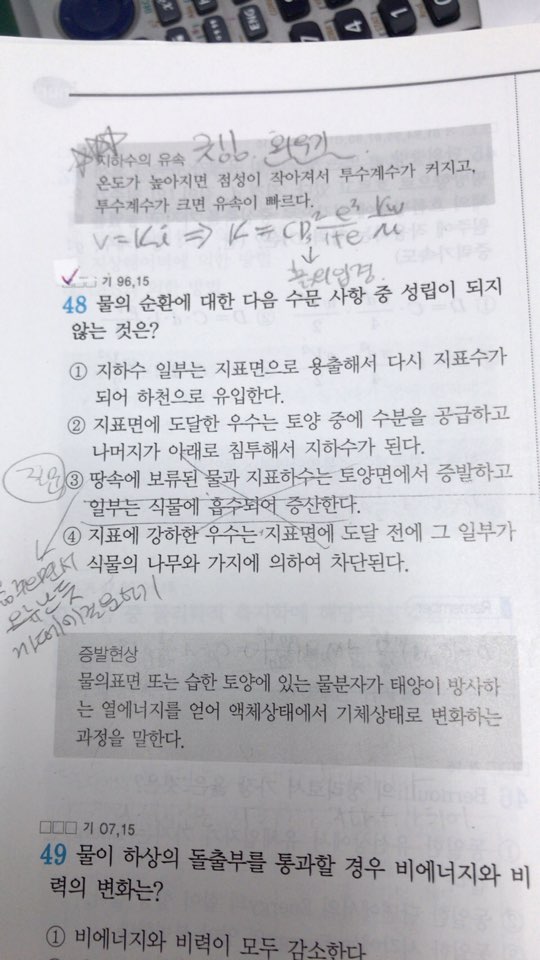 ENG
지하수의 유속
온도가 높아지면 점성이 작아져서 투수계수가 커지고,
투수계수가 크면 유속이 빠르다.
V=Ki ⇒ K=
□□ 기 96,15
48 물의 순환에 대한 다음 수문 사항 중 성립이 되지
않는 것은?
① 지하수 일부는 지표면으로 용출해서 다시 지표수가
되어 하천으로 유입한다.
② 지표면에 도달한 우수는 토양 중에 수분을 공급하고
나머지가 아래로 침투해서 지하수가 된다.
질문
③ 땅속에 보류된 물과 지표하수는 토양면에서 증발하고
일부는 식물에 흡수되어 증산한다.
④ 지표에 강하한 우수는 지표면에 도달 전에 그 일부가
식물의 나무와 가지에 의하여 차단된다.
증발현상
물의표면 또는 습한 토양에 있는 물분자가 태양이 방사하
는 열에너지를 얻어 액체상태에서 기체상태로 변화하는
과정을 말한다.
□□□ 기 07,15
49 물이 하상의 돌출부를 통과할 경우 비에너지와 비
력의 변화는?
① 비에너지와 비력이 모두 감소한다